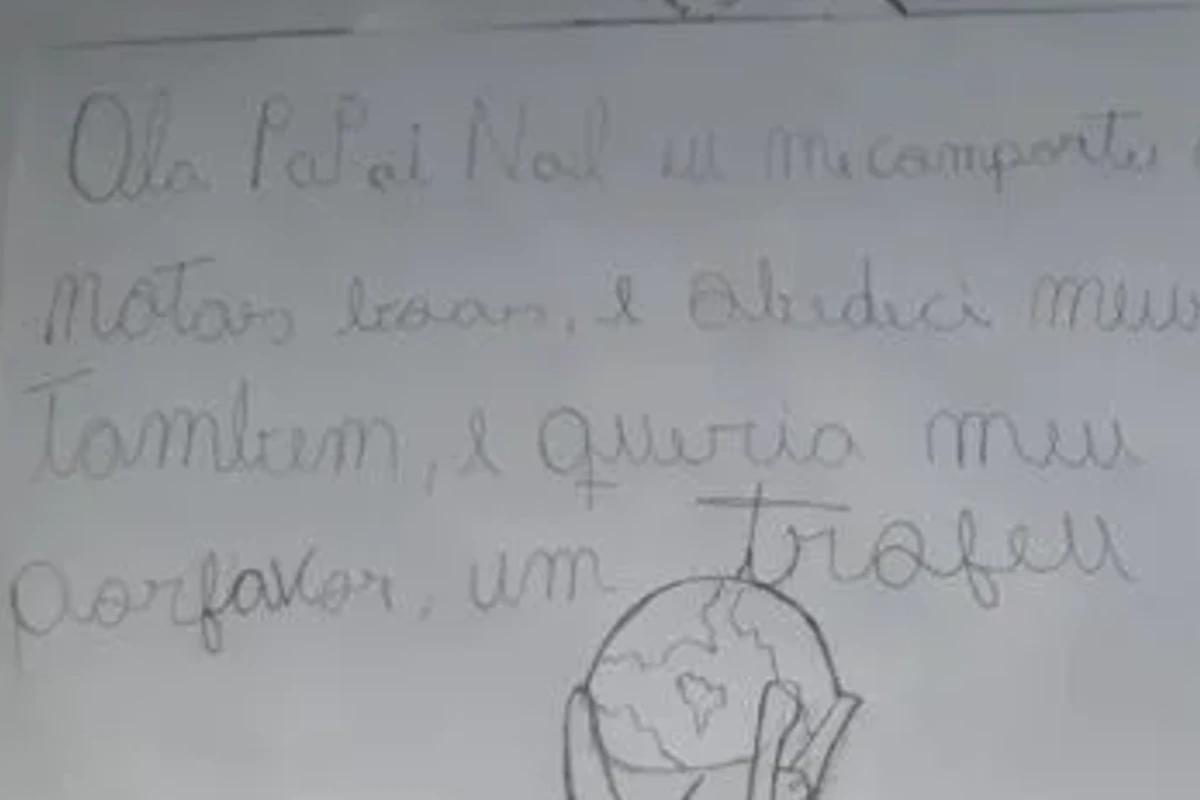 Ola PaPai Noel eu me comportei
notas boas, e obedeci meus
Tambem, e queria meu
porfavor, um Trofeu